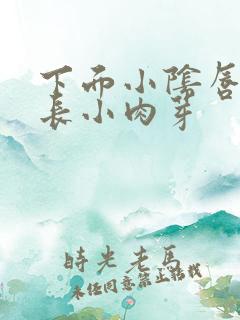 下面小陰唇
長小肉芽
時光老馬
未经同意禁止搭載